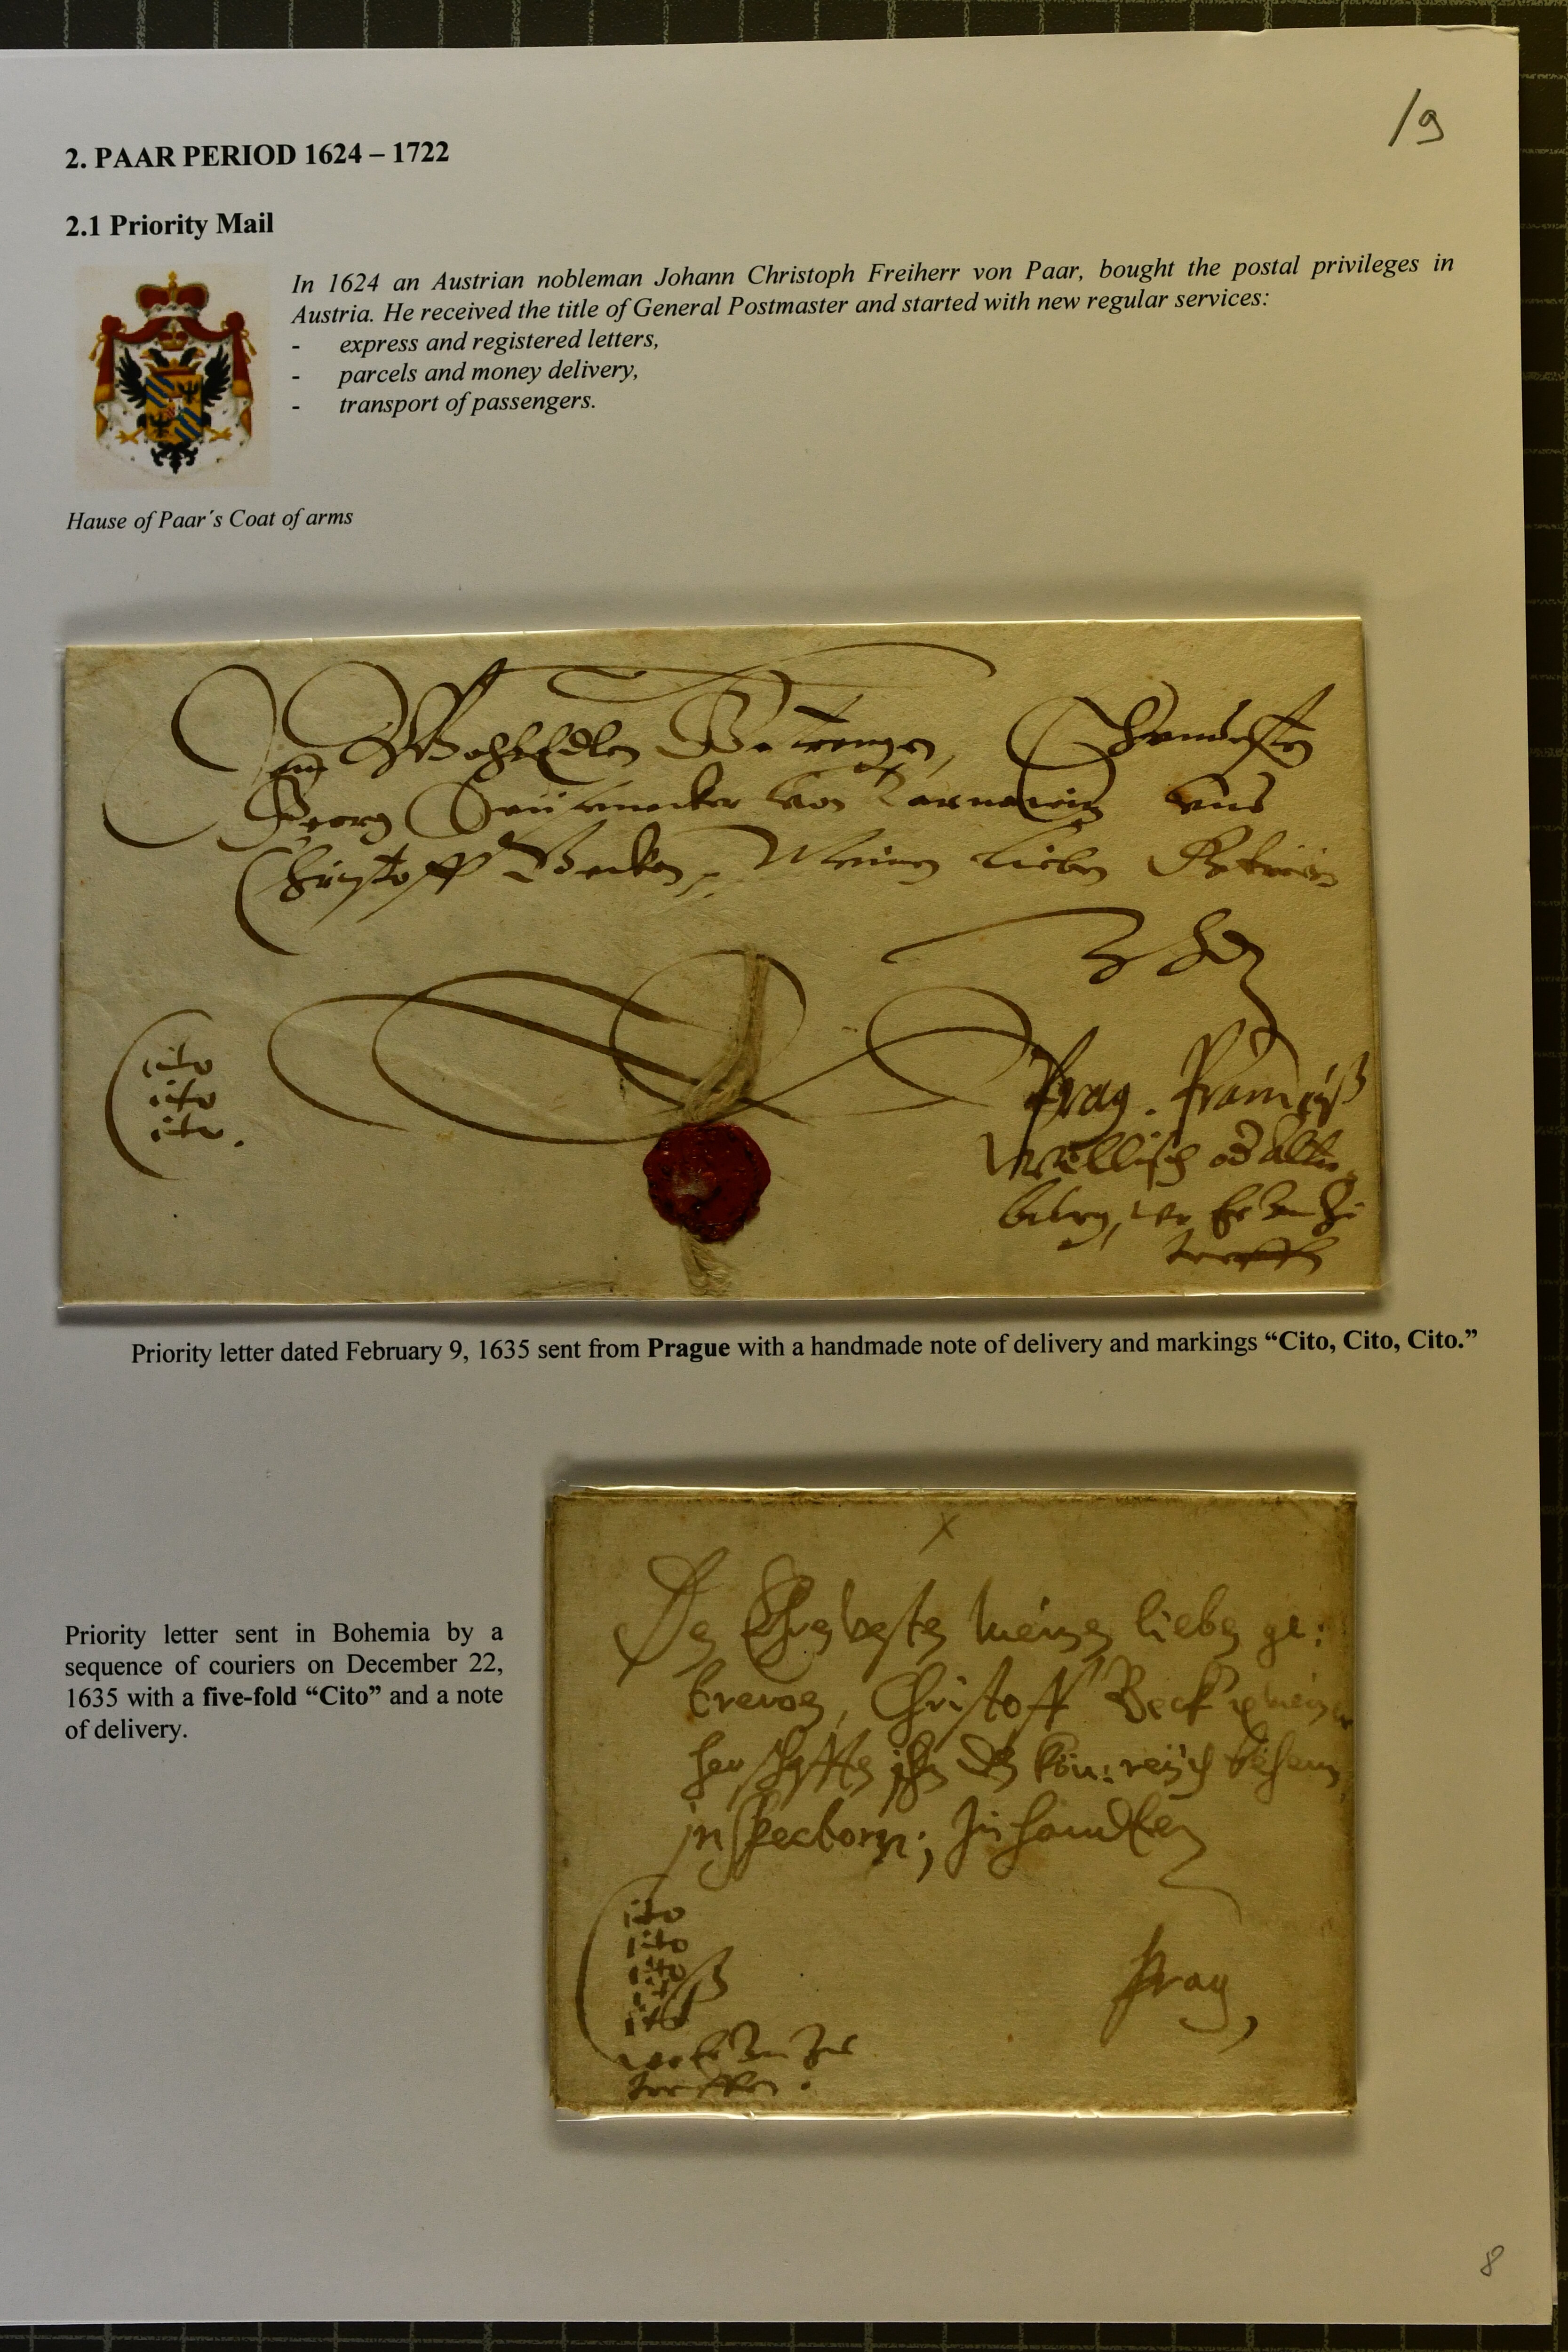 /9
2. PAAR PERIOD 1624 – 1722
2.1 Priority Mail
In 1624 an Austrian nobleman Johann Christoph Freiherr von Paar, bought the postal privileges in
Austria. He received the title of General Postmaster and started with new regular services:
- express and registered letters,
- parcels and money delivery,
- transport of passengers.
Hause of Paar´s Coat of arms
WohlEdlen
Georg von
Christoff Becken, Meinen lieben
Cito
Cito
Cito.
Prag.
Priority letter dated February 9, 1635 sent from Prague with a handmade note of delivery and markings “Cito, Cito, Cito.”
x
meinen lieben ge:
trewen, Christoff Beck
inspectorn;
Priority letter sent in Bohemia by a
sequence of couriers on December 22,
1635 with a five-fold “Cito” and a note
of delivery.
Cito
Cito
Cito
Cito
Cito
Prag,
8